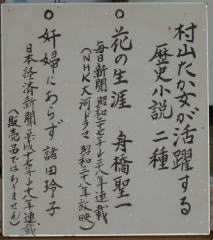 村山たか女が活躍する
歴史小説 二種
○花の生涯 舟橋聖一
毎日新聞 昭和二七年~二八年連載
(NHK大河ドラマ 昭和三八年放映)
○奸婦にあらず 諸田玲子
日本経済新聞 平成十七年~十八年連載
(販売品ではありません)